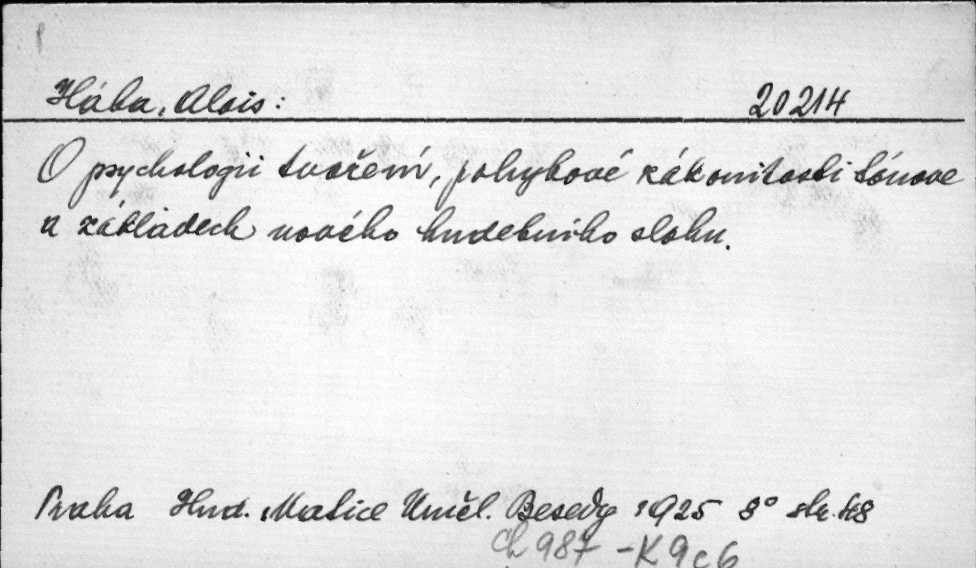 Hába, Alois: 20214
O psychologii tvoření, pohybové zákonitosti tónové
a základech nového hudebního slohu.
Praha Hud. Matice Uměl. Besedy 1925 8° str. 48
Ch 987 - K 9c6